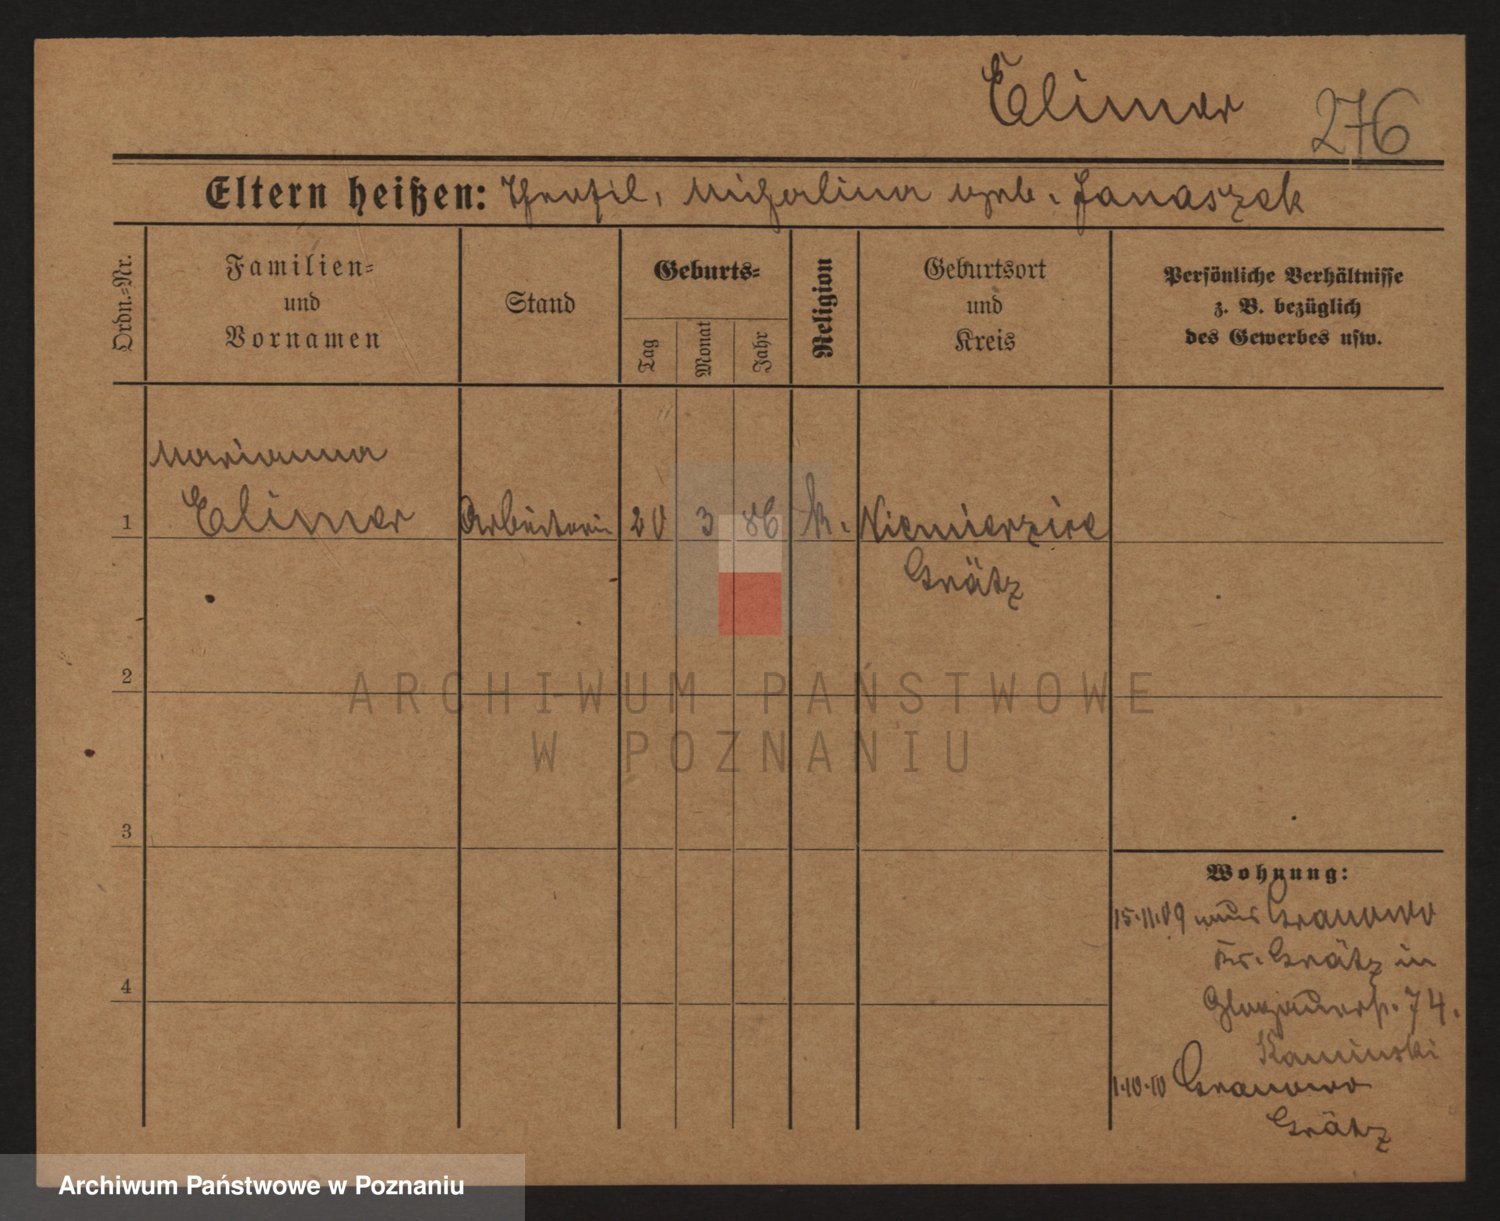 Elimer 276
Eltern heißen: Theofil, Michalina geb. Janaszek
Ordn.-Nr.
Familien-
und
Vornamen
Stand
Geburts-
Tag
Monat
Jahr
Religion
Geburtsort
und
Kreis
Persönliche Verhältnisse
z. B. bezüglich
des Gewerbes usw.
Marianna
1 Elimer Arbeiterin 20 3 86 k. Niemierzice
Grätz
2
3
4
Wohnung:
15.11.09 aus Granowo
Kr. Grätz in
Glogauerstr. 74.
Kaminski
1.10.10 Granowo
Grätz
ARCHIWUM PAŃSTWOWE
W POZNANIU
Archiwum Państwowe w Poznaniu